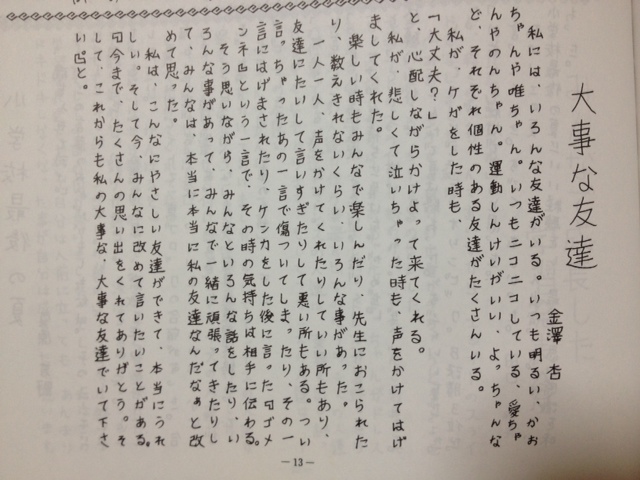 大事な友達
金澤 杏
私には、いろんな友達がいる。いつも明るい、かお
ちゃんや唯ちゃん。いつもニコニコしている、愛ちゃ
んやのんちゃん。運動しんけいがいい、よっちゃんな
ど、それぞれ個性のある友達がたくさんいる。
私が、ケガをした時も、
「大丈夫?」
と、心配しながらかけよって来てくれる。
私が、悲しくて泣いちゃった時も、声をかけてはげ
ましてくれた。
楽しい時もみんなで楽しんだり、先生におこられた
り、数えきれないくらい、いろんな事があった。
一人一人、声をかけてくれたりしていい所もあり、
友達にたいして言いすぎたりして悪い所もある。つい
言っちゃったあの一言で傷ついてしまったり、その一
言にはげまされたり、ケンカをした後に言った『ゴメ
ンネ』という一言で、その時の気持ちは相手に伝わる。
そう思いながら、みんなといろんな話をしたり、い
ろんな事があって、みんなで一緒に頑張ってきたりし
て、みんなは、本当に本当に私の友達なんだなぁと改
めて思った。
私は、こんなにやさしい友達ができて、本当にうれ
しい。そして今、みんなに改めて言いたいことがある。
『今まで、たくさんの思い出をくれてありがとう。そ
して、これからも私の大事な、大事な友達でいて下さ
い』と。
－13－